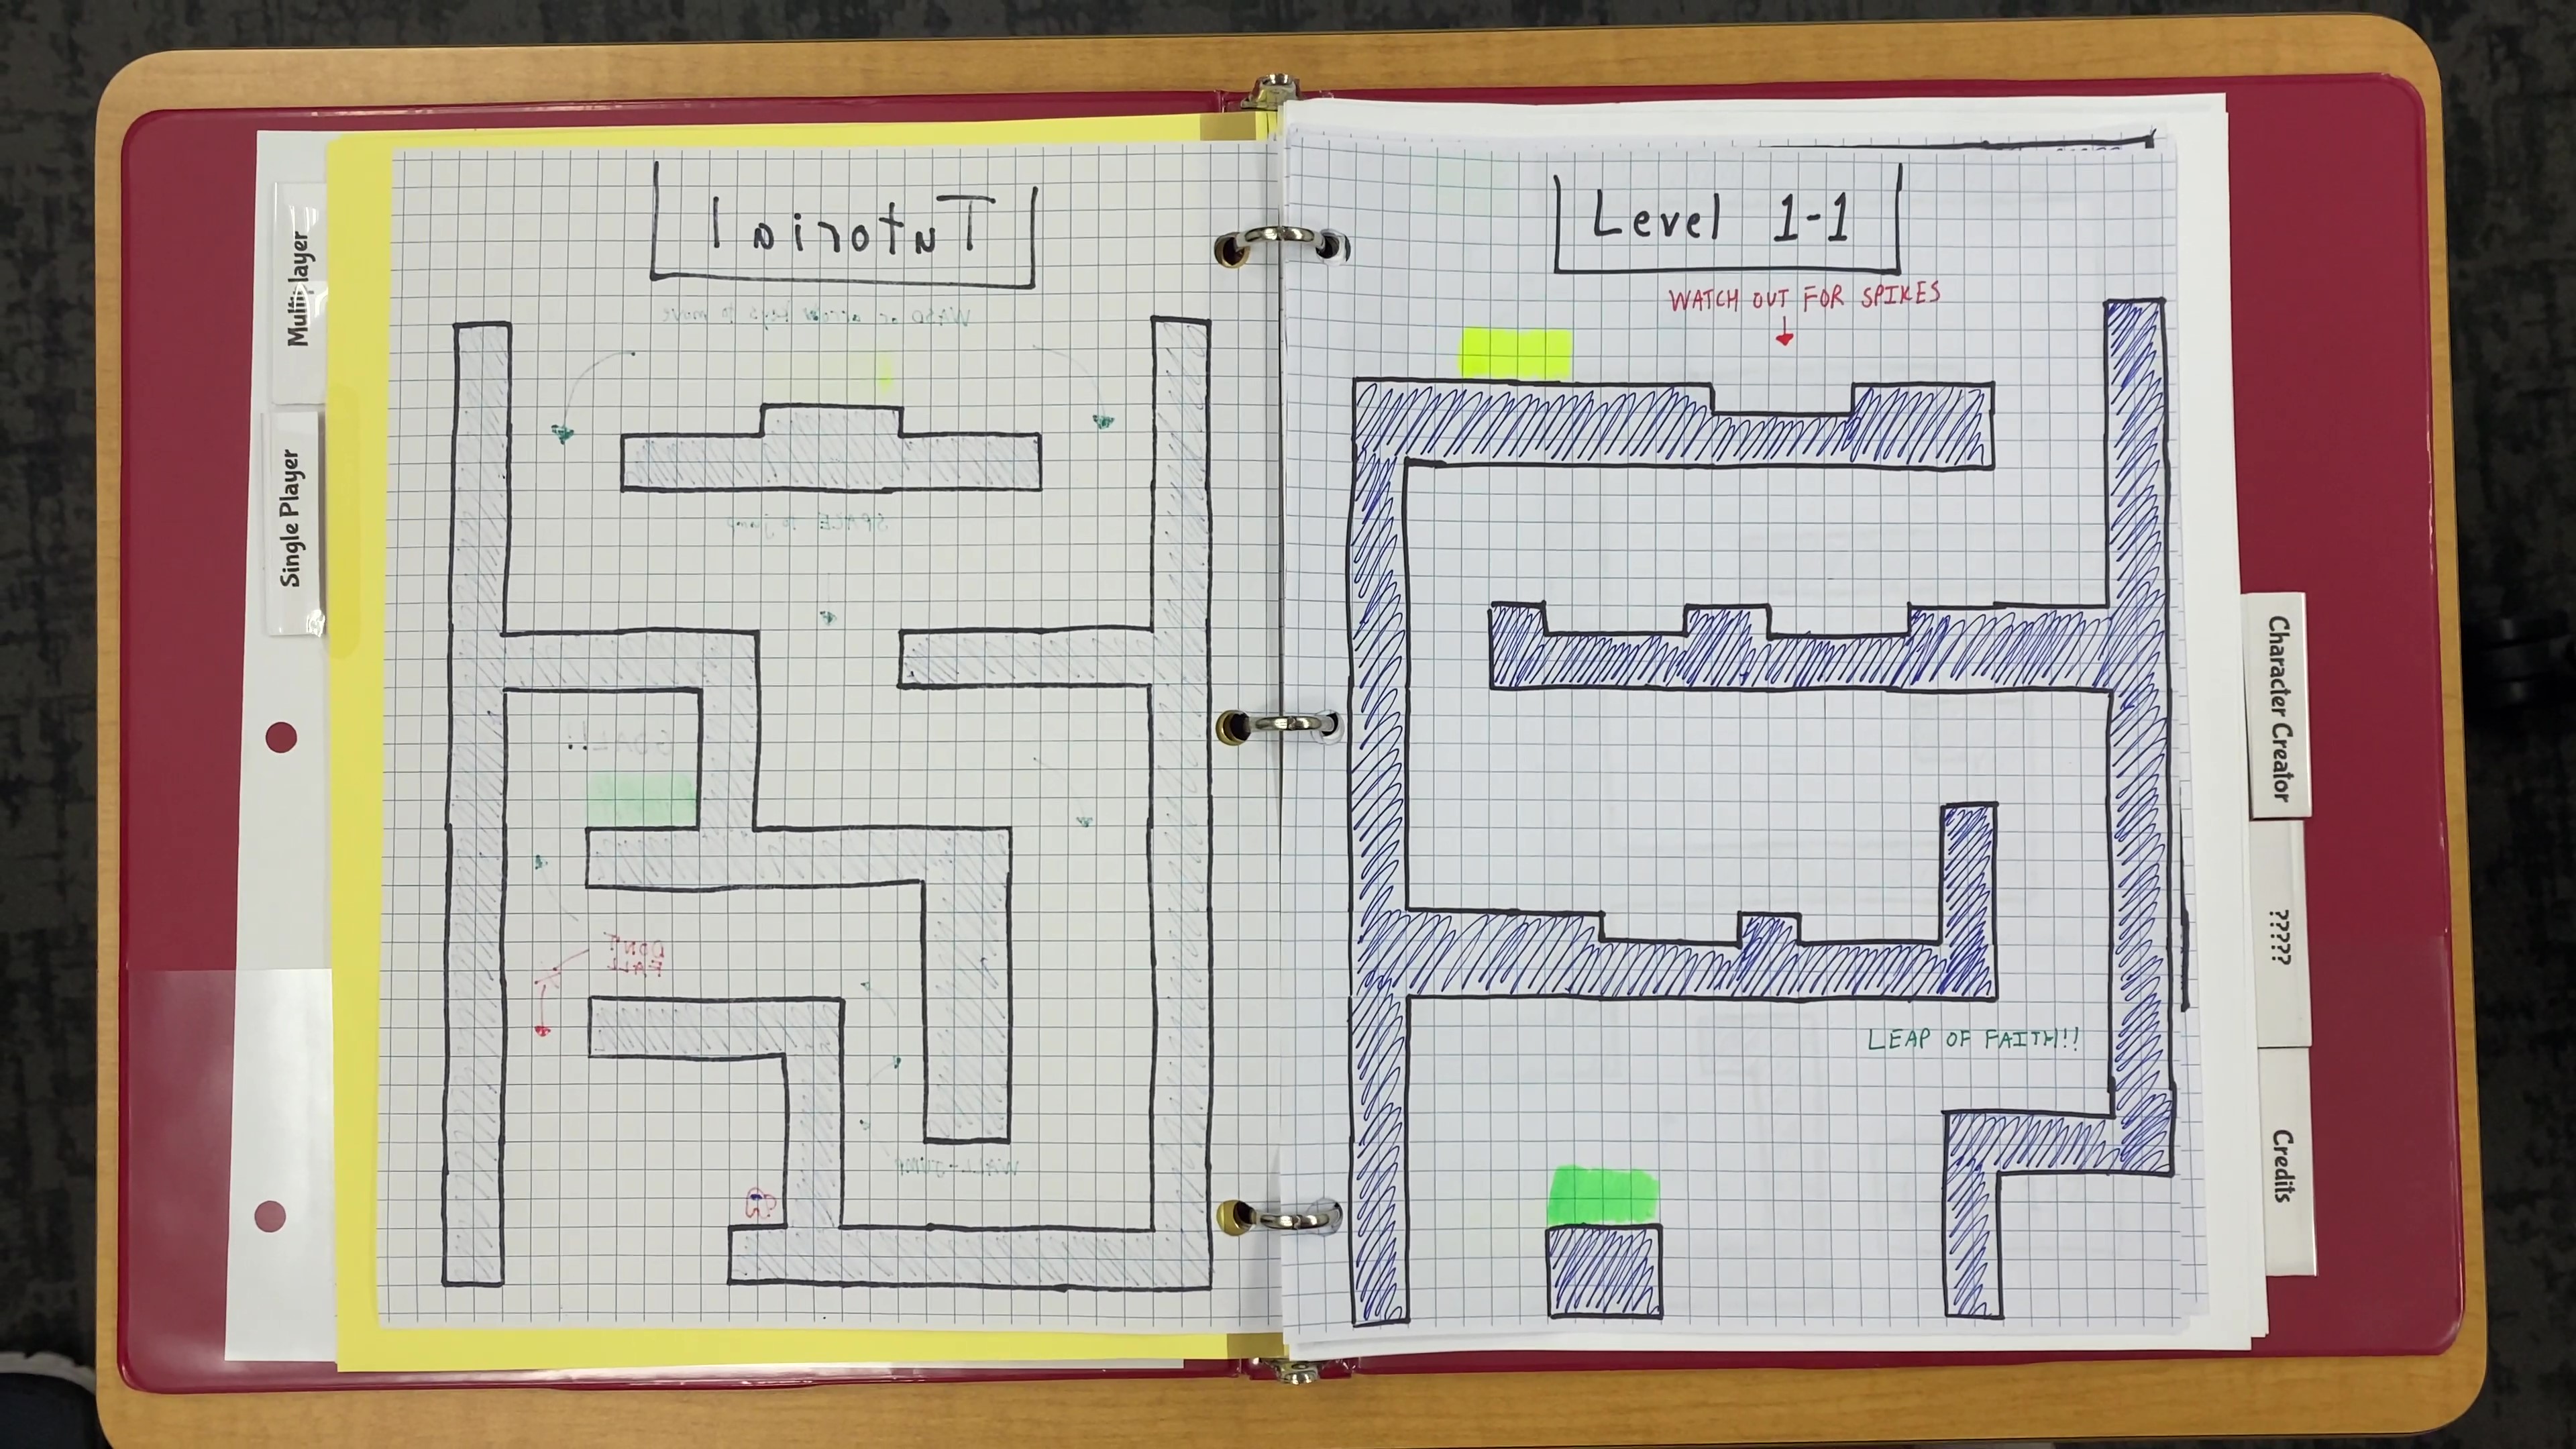 Multiplayer
Single Player
Tutorial
WASD or arrow keys to move
SPACE to jump
GOAL!!
DON'T
FALL
WALL-JUMP
Level 1-1
WATCH OUT FOR SPIKES
LEAP OF FAITH!!
Character Creator
?????
Credits